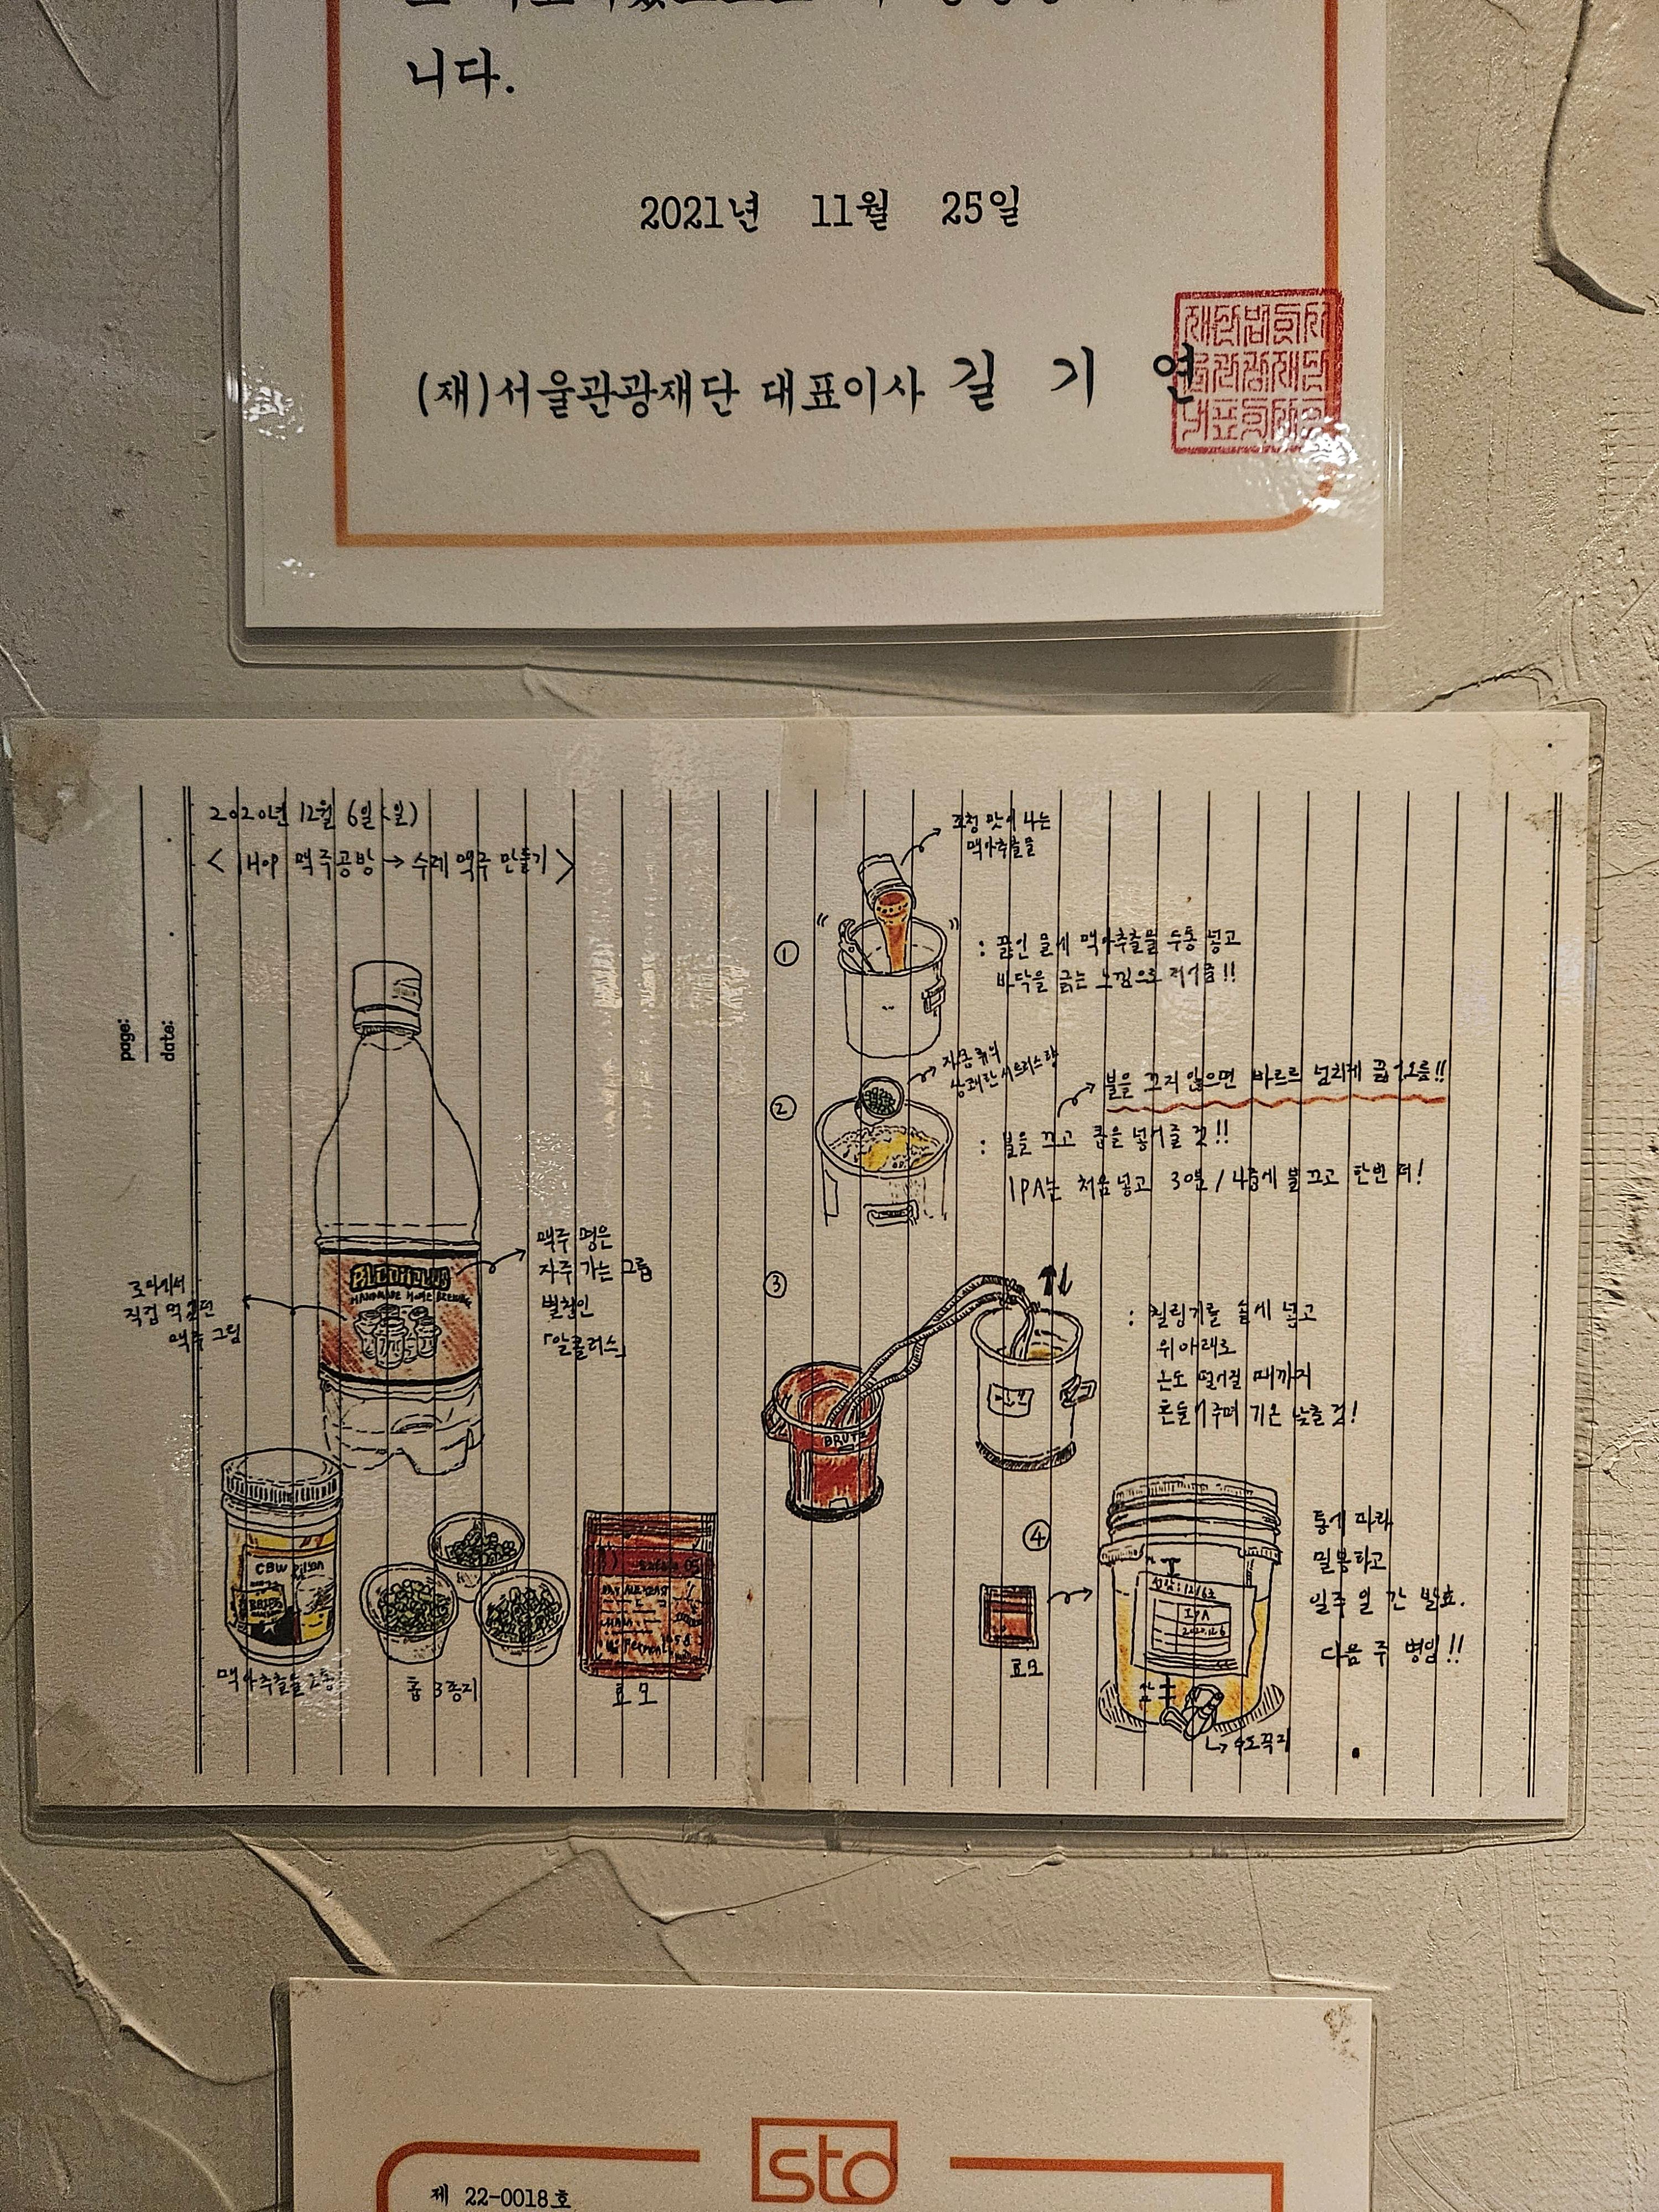 니다.
2021년 11월 25일
(재)서울관광재단 대표이사 길 기 연
page:
date:
2020년 12월 6일 (일)
< Hop 맥주공방 → 수제 맥주 만들기 >
로마에서
직접 먹었던
맥주 그림
맥주 명은
자주 가는 그룹
별칭인
「알콜러스」
HANDMADE HOME BREWING
CBW
맥아추출물 2통
홉 3종지
효모
①
조청 맛이 나는
맥아추출물
: 끓인 물에 맥아추출물 두통 넣고
바닥을 긁는 느낌으로 저어줌!!
②
상쾌한 시트러스향
불을 끄지 않으면 바르르 넘치게 끓어오름!!
: 불을 끄고 홉을 넣어줄 것!!
IPA는 처음 넣고 30분/45분에 불 끄고 한번 더!
③
BRUTE
: 칠링기를 솥에 넣고
위아래로
온도 떨어질 때까지
흔들어주며 기온 낮출 것!
④
효모
IPA
통에 따라
밀봉하고
일주일 간 발효.
다음 주 병입!!
↳ 수도꼭지
sto
제 22-0018호